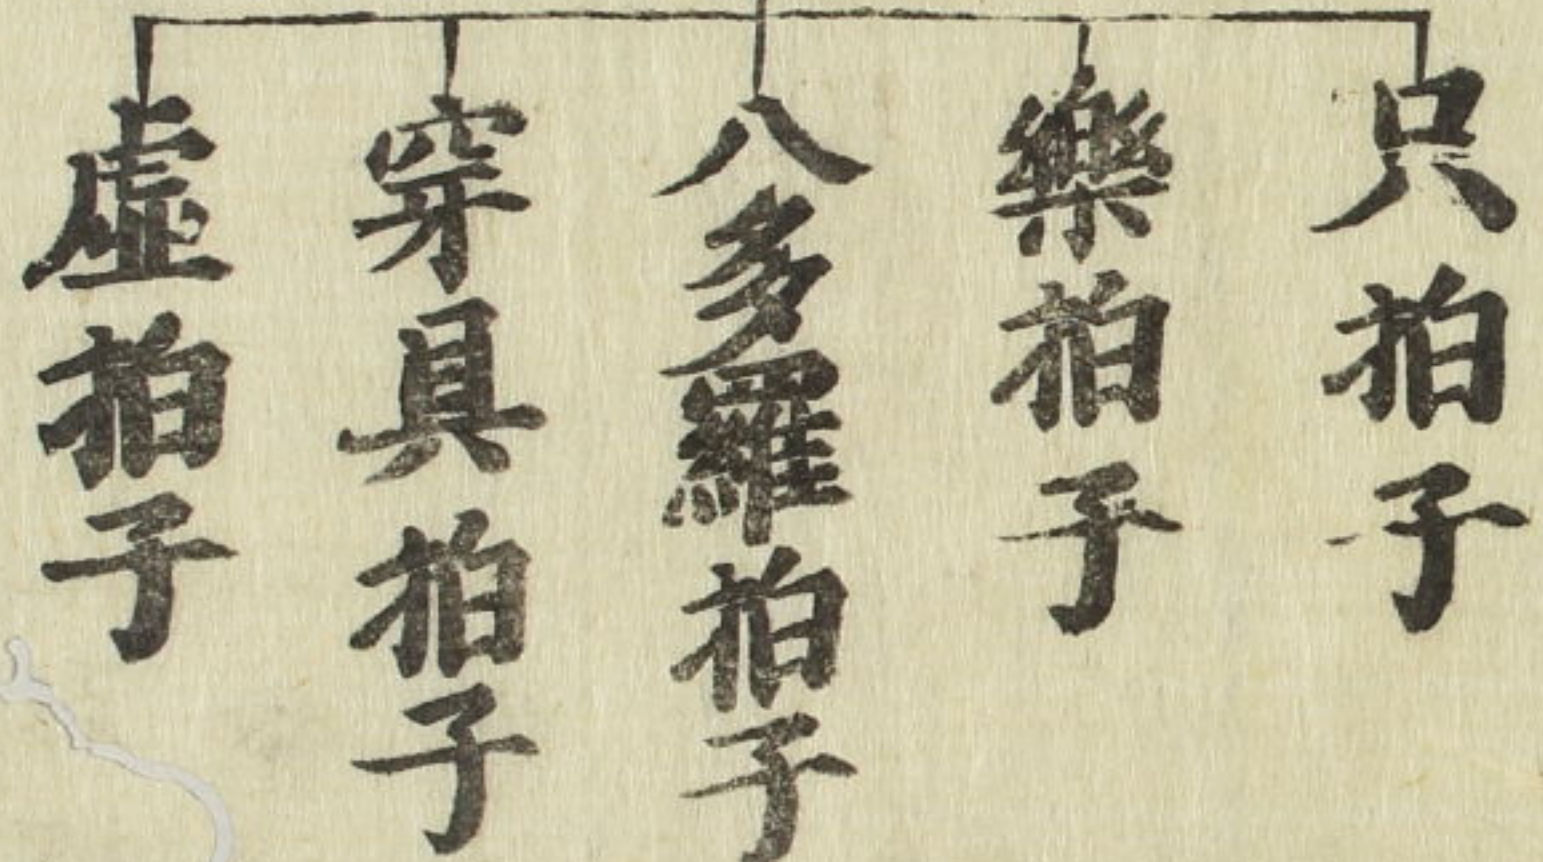 只拍子
樂拍子
八多羅拍子
穿具拍子
虛拍子